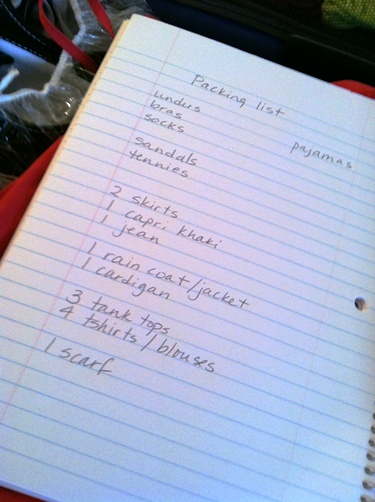 Packing list
undus
bras
socks
pajamas
sandals
tennies
2 skirts
1 capri khaki
1 jean
1 rain coat/jacket
1 cardigan
3 tank tops
4 tshirts/blouses
1 scarf